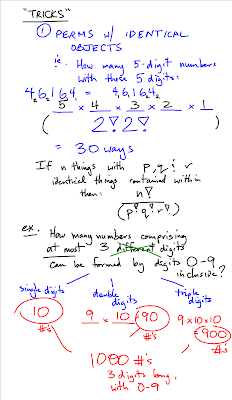 "TRICKS"
① PERMS W/ IDENTICAL
OBJECTS
ie. How many 5-digit numbers
with these 5 digits:
4, 6, 1, 6, 4 = 4, 6, 1, 6, 4
5 × 4 × 3 × 2 × 1
2! 2!
= 30 ways
If n things with p, q, & r
identical things contained within
then: n!
(p! q! r!)
ex. How many numbers comprising
at most 3 different digits
can be formed by digits 0-9
inclusive?
single digits double digits triple digits
10 9 × 10 = 90 9 × 10 × 10
#'s #'s = 900
#'s
1000 #'s
3 digits long
with 0-9